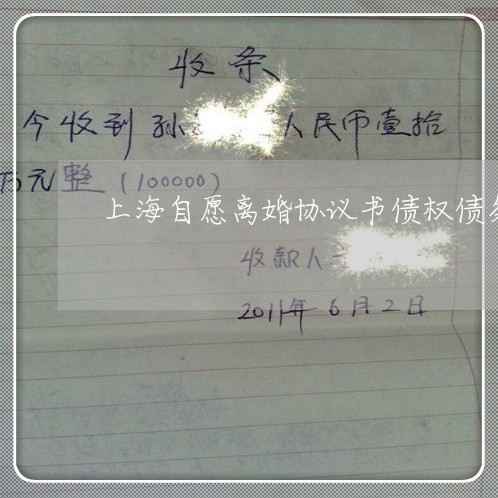 收条
今收到孙 人民币壹拾
万元整（100000）
上海自愿离婚协议书债权债务
收款人
2011年6月2日